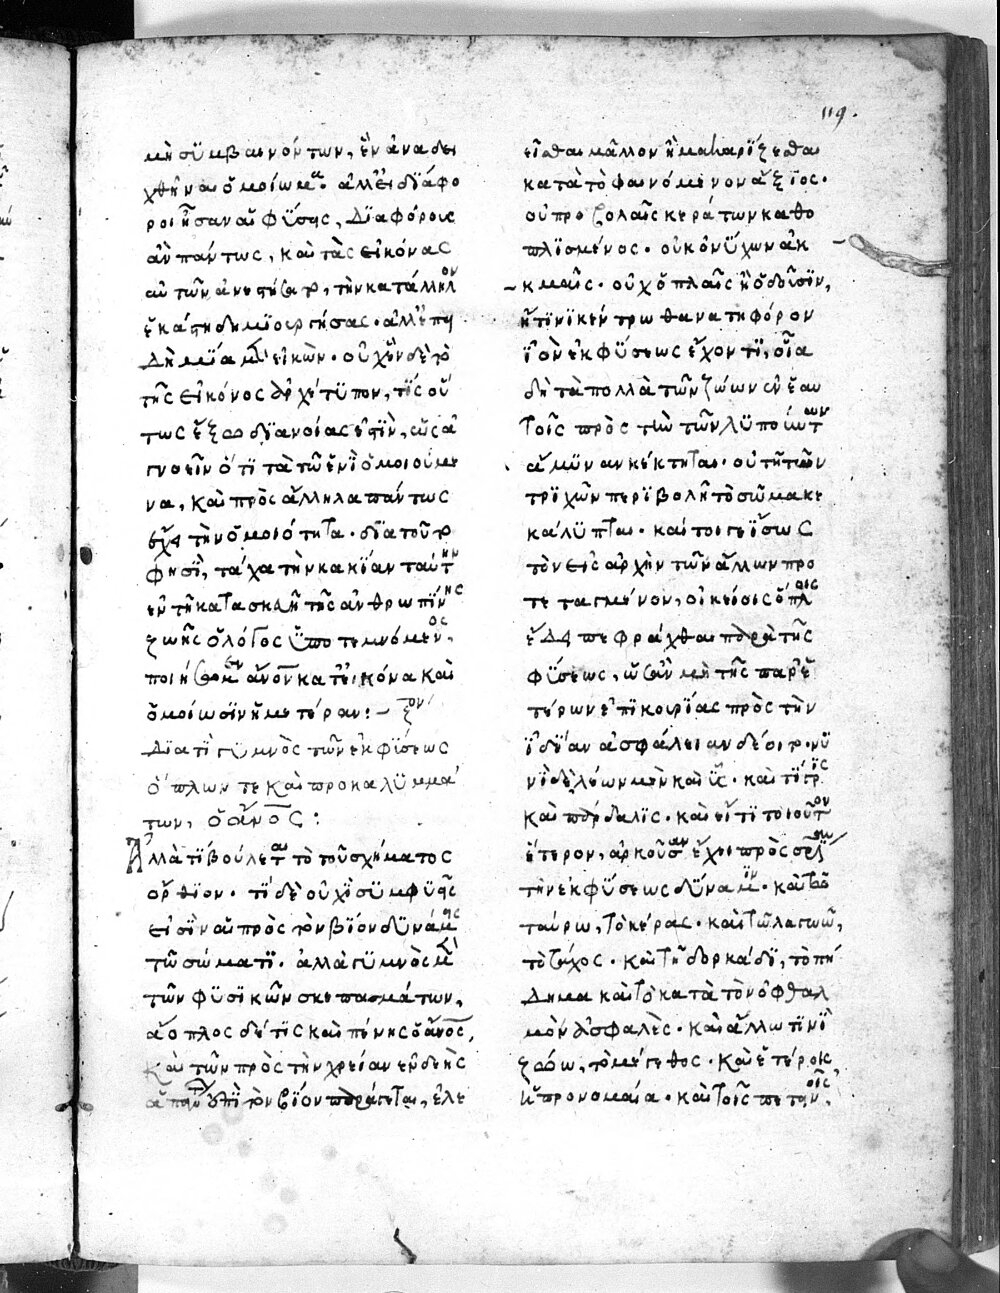 119.
μὴ συμβαινόντων, ἓν ἀναδει
χθῆναι ὁμοίωμα. ἀλλ' εἰ διάφο
ροι ἦσαν αἱ φύσεις, διαφόρους
ἂν πάντως, καὶ τὰς εἰκόνας
αὐτῶν ἀνεστήσατο, τὴν κατάλληλον
ἑκάστη δημιουργήσας. ἀλλ' ἐπει
δὴ μία μὲν ἡ εἰκὼν. οὐχ ἓν δὲ τὸ
τῆς εἰκόνος ἀρχέτυπον, τίς οὕ
τως ἔξω διανοίας ἐστὶν, ὡς ἀ
γνοεῖν ὅτι τὰ τῶ ἑνὶ ὁμοιούμε
να, καὶ πρὸς ἄλληλα πάντως
ἔχει τὴν ὁμοιότητα. διὰ τοῦτο
φησὶ, τάχα τὴν κακίαν ταύτην
ἐν τῆ κατασκευῆ τῆς ἀνθρωπίνης
ζωῆς ὁ λόγος ὑποτεμνόμενος,
ποιήσωμεν ἄνον κατ' εἰκόνα καὶ
ὁμοίωσιν ἡμετέραν:-
Διατί γυμνὸς τῶν ἐκ φύσεως
ὅπλων τε καὶ προκαλυμμά
των, ὁ ἄνος:
Ἀλλὰ τί βούλεται τὸ τοῦ σχήματος
ὄρθιον. τί δὲ οὐχὶ συμφυεῖς
εἰσὶν αἱ πρὸς τὸν βίον δυνάμεις
τῶ σώματι. ἀλλὰ γυμνὸς μὲν
τῶν φυσικῶν σκεπασμάτων,
ἄοπλος δέ τις καὶ πένης ὁ ἄνος,
καὶ τῶν πρὸς τὴν χρείαν ἐνδεὴς
ἁπάντων ἐπὶ τὸν βίον παράγεται, ἐλε
εῖσθαι μᾶλλον ἢ μακαρίζεσθαι
κατὰ τὸ φαινόμενον ἄξιος.
οὐ προβολαῖς κεράτων καθο
πλισμένος. οὐκ ὀνύχων ἀκ
κμαῖς. οὐχ ὁπλαῖς ἢ ὀδοῦσιν,
ἤ τινι κέντρω θανατηφόρον
ἰὸν ἐκ φύσεως ἔχοντι, οἷα
δὴ τὰ πολλὰ τῶν ζώων ἐν ἑαυ
τοῖς πρὸς τὴν τῶν λυπούντων
ἄμυναν κέκτηται. οὐ τῆ τῶν
τριχῶν περιβολῆ τὸ σῶμα κε
κάλυπται. καίτοιγε ἴσως
τὸν εἰς ἀρχὴν τῶν ἄλλων προ
τεταγμένον, οἰκείοις ὅπλοις
ἔδει πεφράχθαι παρὰ τῆς
φύσεως, ὡς ἂν μὴ τῆς παρ' ἑ
τέρων ἐπικουρίας πρὸς τὴν
ἰδίαν ἀσφάλειαν δέοιτο. νυ
νὶ δὲ λέων μὲν καὶ ὗς. καὶ τίγρις
καὶ πάρδαλις. καὶ εἴ τι τοιοῦτον
ἕτερον, ἀρκοῦσαν ἔχει πρὸς σωτηρίαν
τὴν ἐκ φύσεως δύναμιν. καὶ τῶ
ταύρω, τὸ κέρας. καὶ τῶ λαγωῶ,
τὸ τάχος. καὶ τῆ δορκάδι, τὸ πή
δημα καὶ τὸ κατὰ τὸν ὀφθαλ
μὸν ἀσφαλὲς. καὶ ἄλλω τινὶ
ζώω, τὸ μέγεθος. καὶ ἑτέροις
ἡ προνομαία. καὶ τοῖς πετηνοῖς,